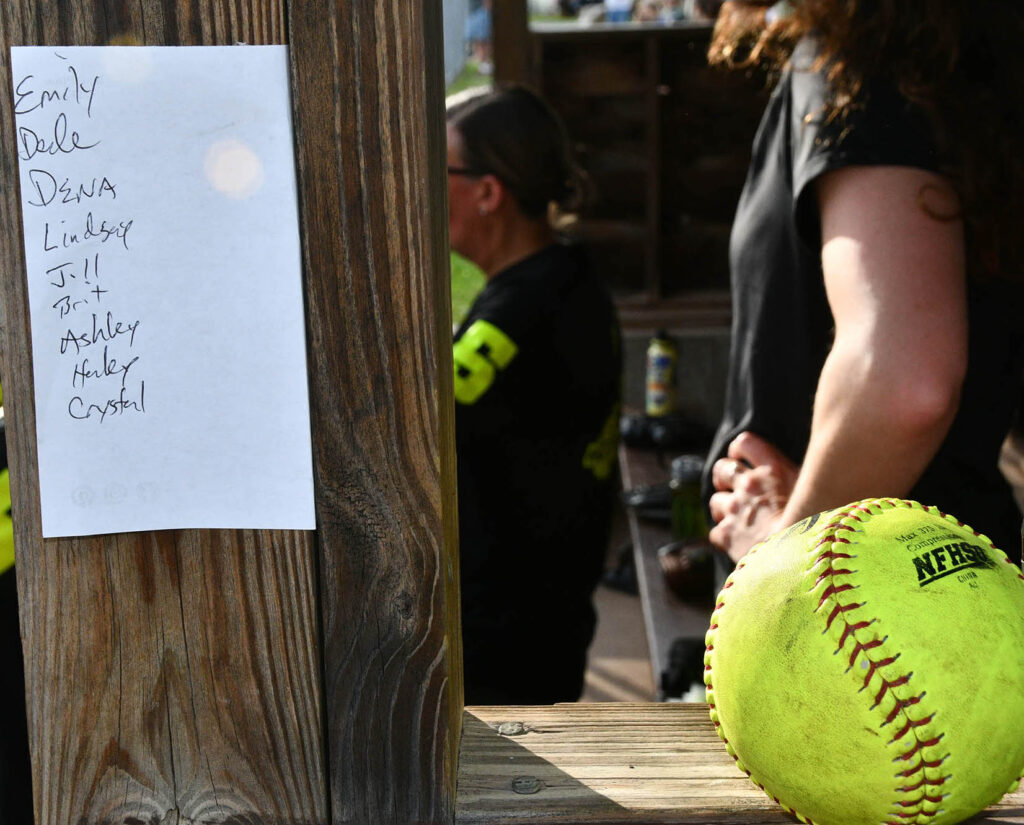 Emily
Dede
DENA
Lindsay
Jill
Brit
Ashley
Henley
Crystal
5
Max 375
Compression
NFHS
CHINA